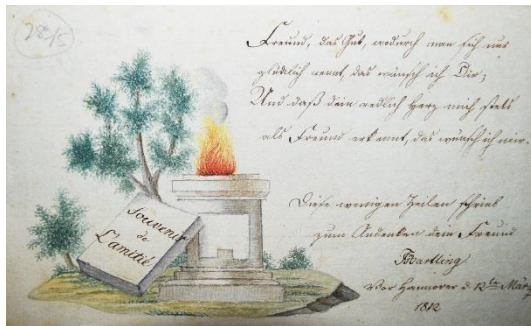 285
Freund, das Gut, wodurch man sich nur
glücklich nennt, das wünsch ich Dir;
Und daß dein redlich Herz mich stets
als Freund erkennt, das wünsch ich mir.
Diese wenigen Zeilen schrieb
zum Andenken dein Freund
Bartling
Vor Hannover d. 12ten März
1812
Souvenir
de
L'amitié